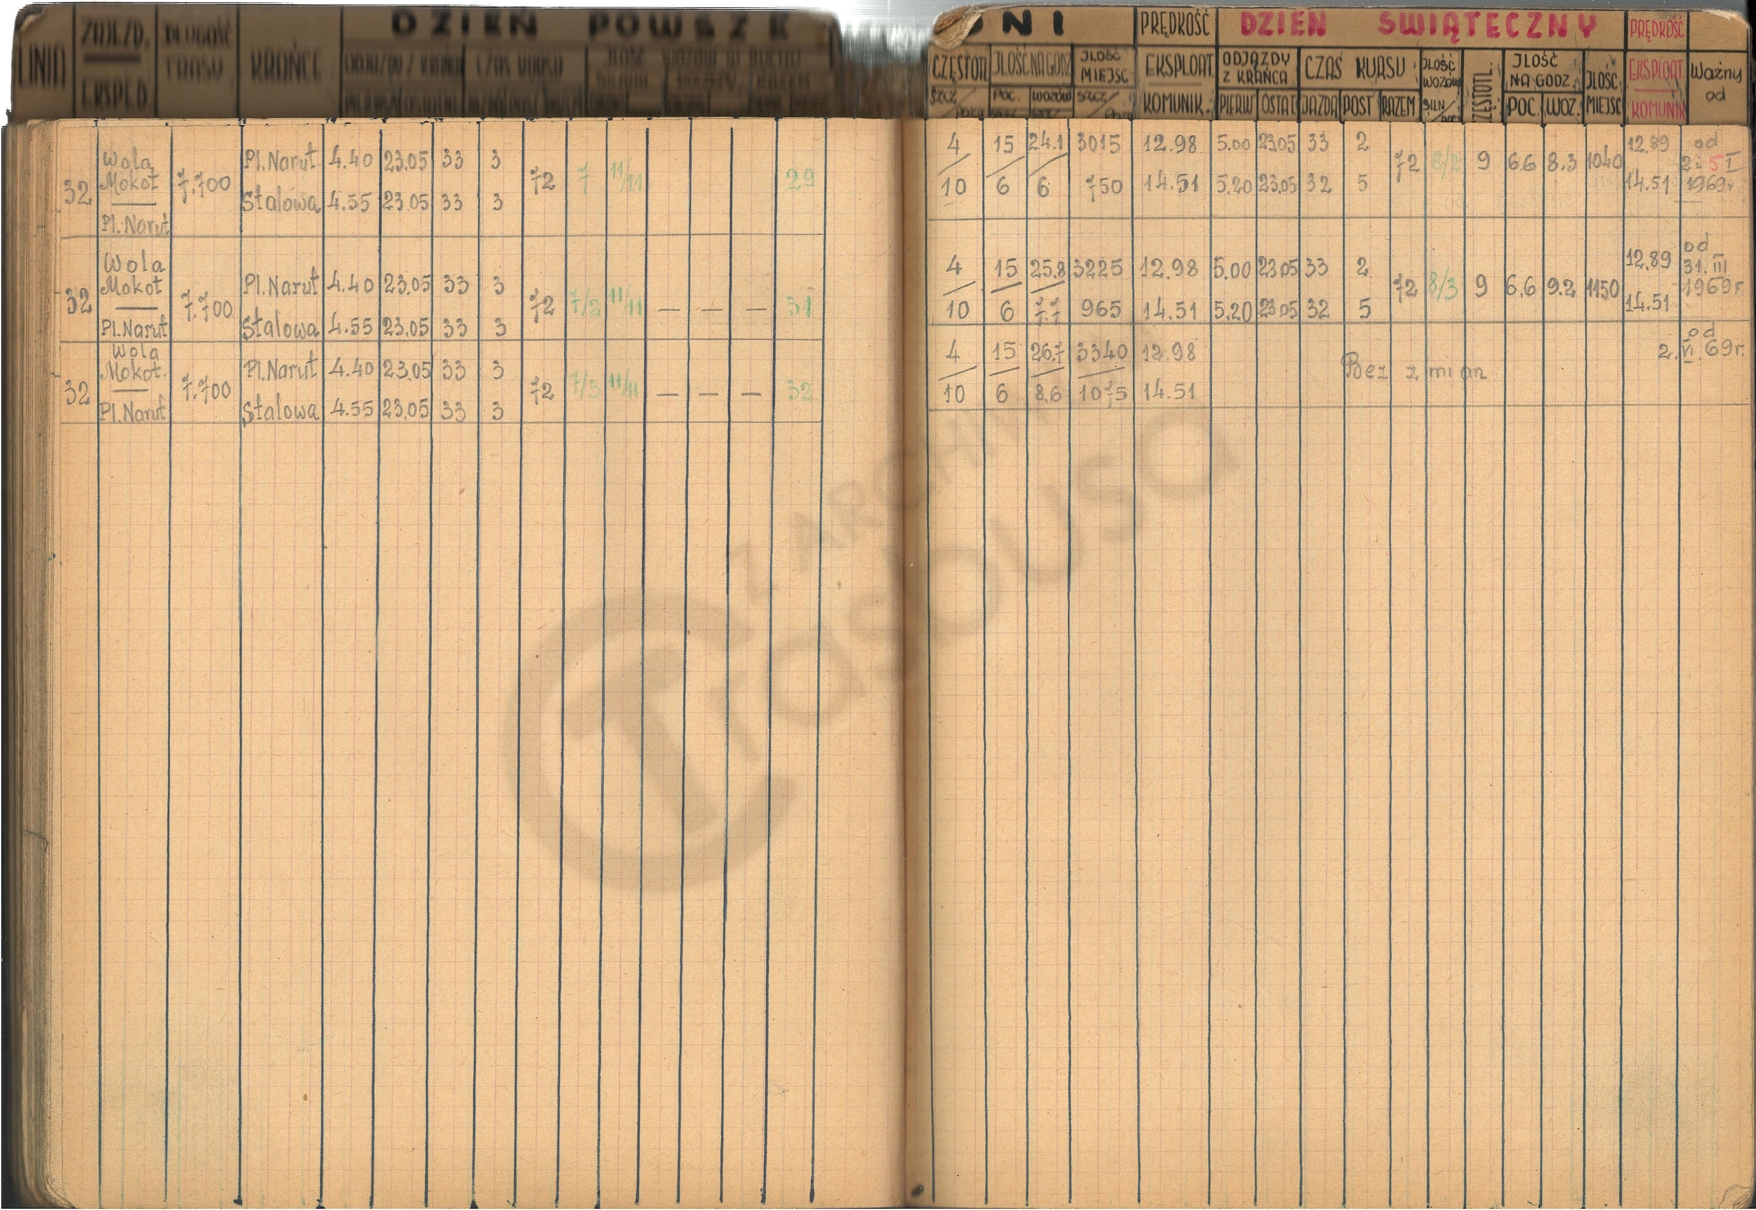 DZIEŃ POWSZE
LINIA ZAJEZD. EKSPED. DŁUGOŚĆ TRASY KRAŃCE
32 Wola Mokot Pl. Narut 7.700 Pl. Narut 4.40 23.05 33 3 72 7 11/11 29
Stalowa 4.55 23.05 33 3
32 Wola Mokot Pl. Narut 7.700 Pl. Narut 4.40 23.05 33 3 72 7/2 11/11 — — — 31
Stalowa 4.55 23.05 33 3
32 Wola Mokot. Pl. Narut 7.700 Pl. Narut 4.40 23.05 33 3 72 7/3 11/11 — — — 32
Stalowa 4.55 23.05 33 3
DNI PRĘDKOŚĆ DZIEŃ ŚWIĄTECZNY PRĘDKOŚĆ
CZĘSTOTL JLOŚĆ NA GODZ JLOŚĆ MIEJSC EKSPLOAT. ODJAZDY Z KRAŃCA CZAS KURSU JLOŚĆ WOZÓW JLOŚĆ NA GODZ. JLOŚĆ MIEJSC EKSPLOAT. Ważny od
SZCZ. POC. WOZÓW SZCZ. KOMUNIK. PIERW OSTAT JAZDA POST RAZEM SILN POC. WOZ. KOMUNIK
4 15 24.1 3015 12.98 5.00 23.05 33 2 72 8/2 9 6.6 8.3 1040 12.89 od
10 6 6 750 14.51 5.20 23.05 32 5 14.51 1969r.
4 15 25.8 3225 12.98 5.00 23.05 33 2 72 8/3 9 6.6 9.2 1150 12.89 od 31.III 1969r.
10 6 7.7 965 14.51 5.20 23.05 32 5 14.51
4 15 26.7 3340 12.98 Bez zmian od 2.VI.69r.
10 6 8.6 1075 14.51
Z ARCHIWUM
Trasbusa